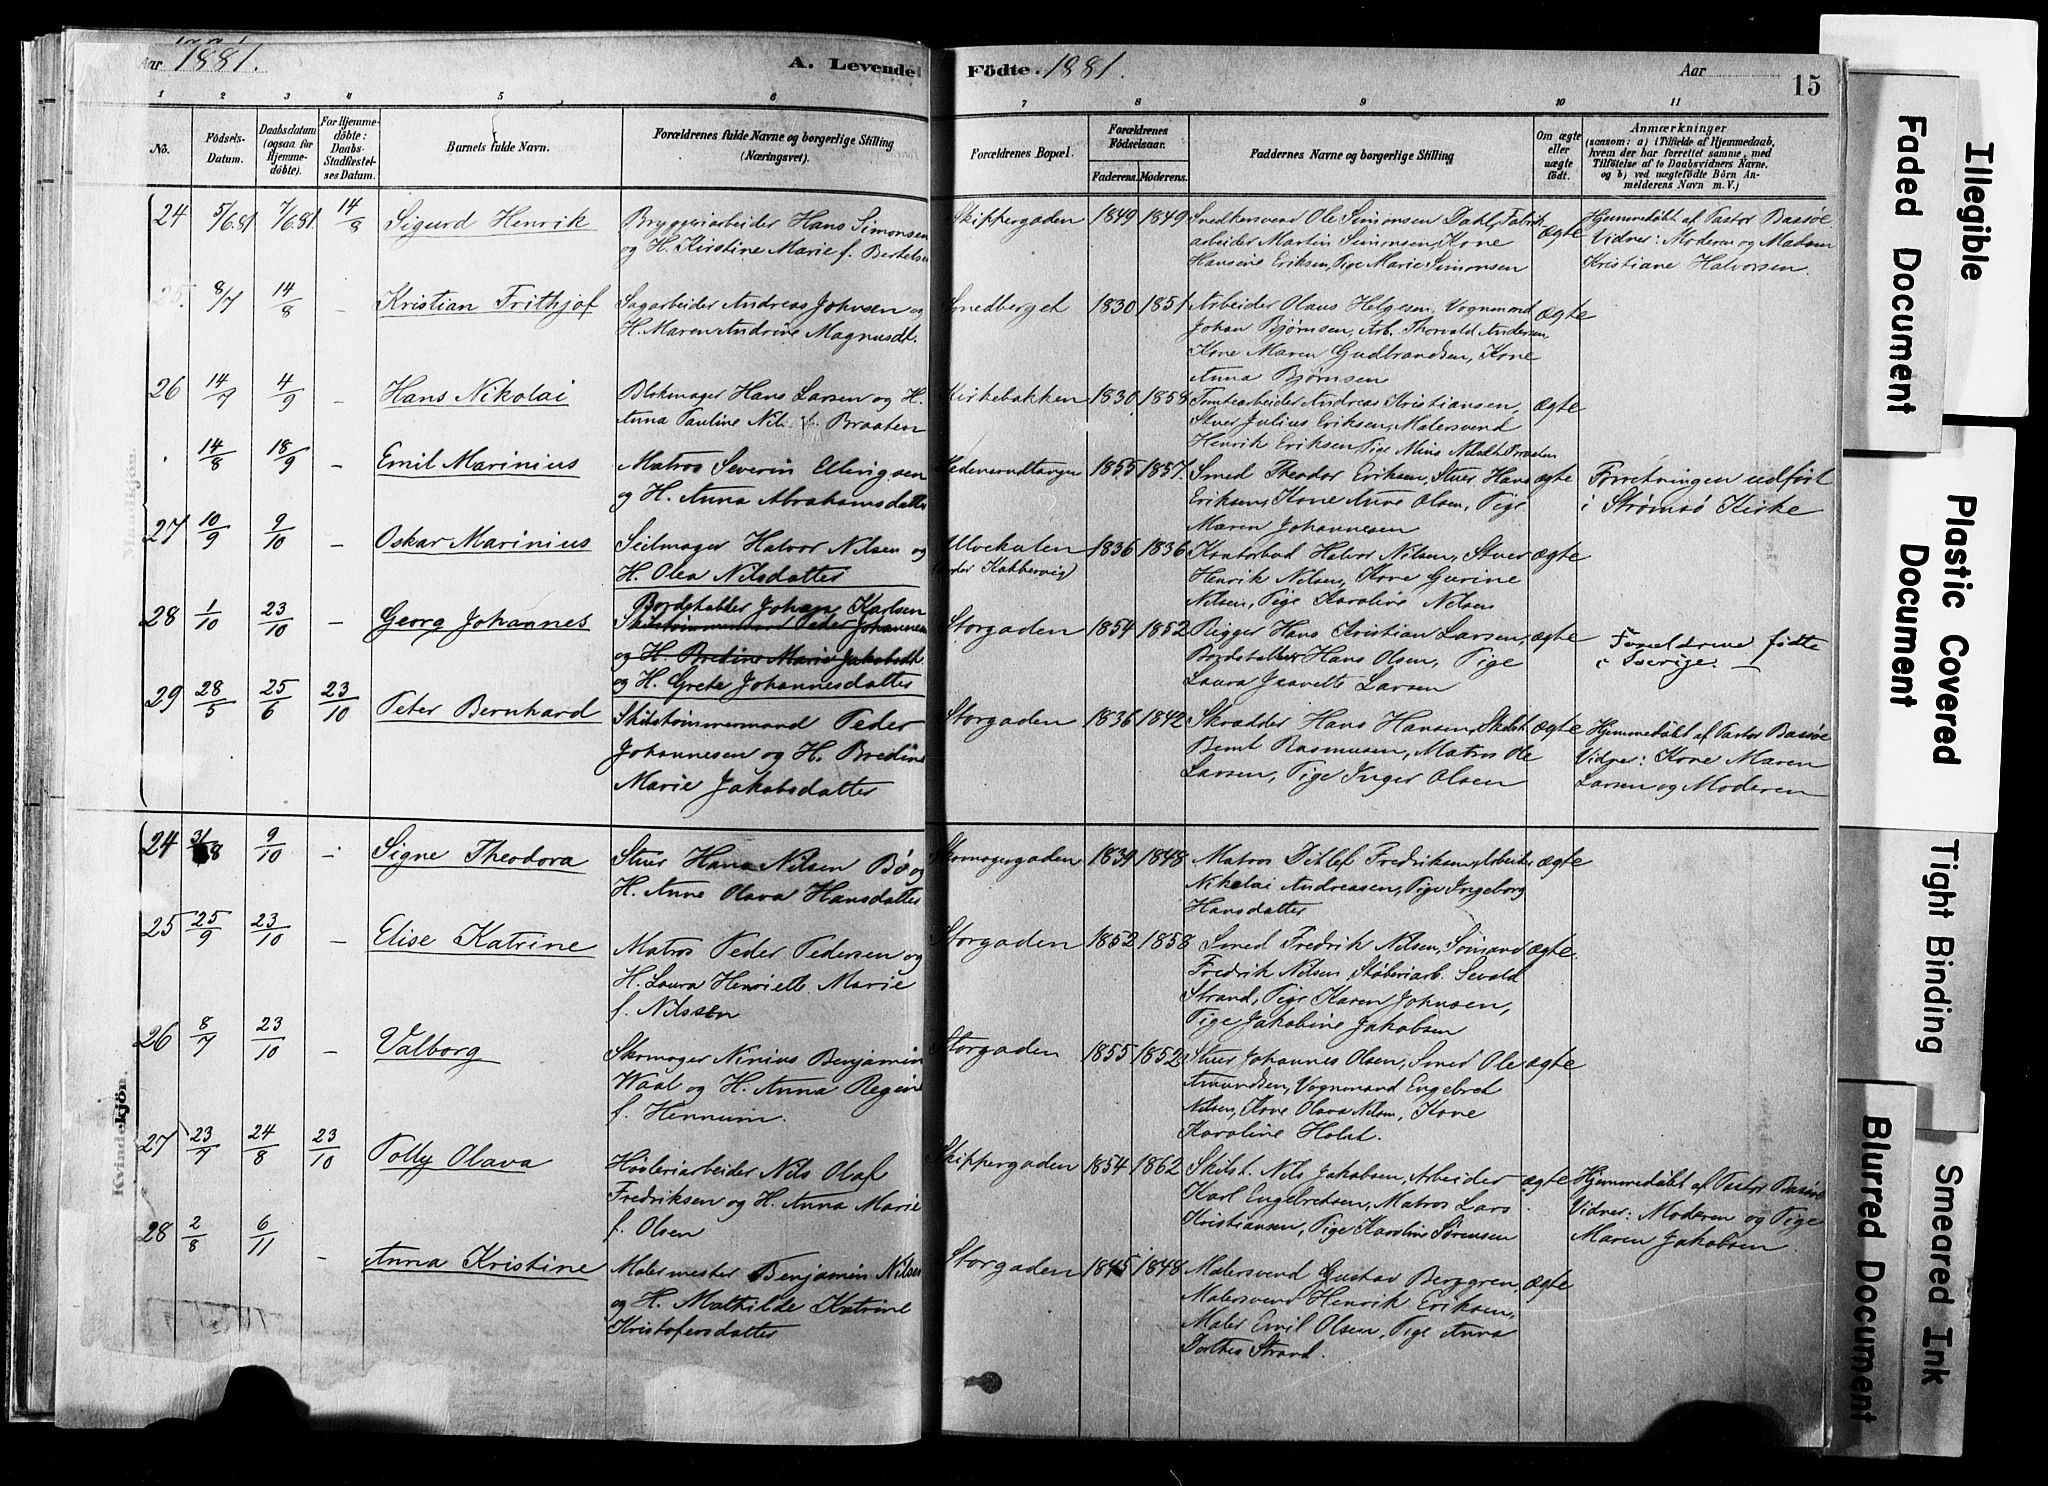 Aar 1881.
A. Levende Födte. 1881.
Aar
15
1 2 3 4 5 6 7 8 9 10 11
No.
Födsels-Datum.
Daabsdatum (ogsaa for Hjemmedöbte).
For Hjemmedöbte: Daabs-Stadfæstelses Datum.
Barnets fulde Navn.
Forældrenes fulde Navne og borgerlige Stilling (Næringsvei).
Forældrenes Bopæl.
Forældrenes Födselsaar.
Faderens. Moderens.
Faddernes Navne og borgerlige Stilling
Om ægte eller uægte födt.
Anmærkninger
(saasom: a) i Tilfælde af Hjemmedaab, hvem der har forrettet samme, med Tilföielse af to Daabsvidners Navne. og b) ved uægtefödte Börn Anmelderens Navn m. V.)
Mandkjön.
24 5/6 81 7/6 81 14/8 Sigurd Henrik
Bryggeriarbeider Hans Simonsen
og H. Kirstine Marie f. Bertelsen
Skippergaden 1849 1849
Snedkersvend Ole Simonsen Dahl, Fabrik
arbeider Martin Simonsen, Kone
Hansine Eriksen, Pige Marie Simonsen
ægte
Hjemmedøbt af Pastor Bassøe
Vidner: Moderen og Madam
Kristiane Halvorsen.
25. 8/7 14/8 Kristian Frithjof
Sagarbeider Andreas Johnsen og
H. Maren Andrine Magnusdt.
Smedberget 1830 1851
Arbeider Olaus Helgesen, Vognmand
Johan Bjørnsen, Arb. Thorvald Andersen,
Kone Maren Gudbrandsen, Kone
Anna Bjørnsen
ægte
26 14/7 4/9 - Hans Nikolai
Blokmager Hans Larsen og H.
Anna Pauline Nils Braaten
Kirkebakken 1830 1858
Tomtearbeider Andreas Kristiansen,
Stuer Julius Eriksen, Malersvend
Henrik Eriksen, Pige Mina Nilsdt. Braaten
ægte
14/8 18/9 - Emil Marinius
Matros Severin Ellingsen
og H. Anna Abrahamsdatter
1855 1857.
Smed Theodor Eriksen, Stuer Hans
Eriksen, Kone Anne Olsen, Pige
Maren Johannesen
ægte
Forretningen udført
i Strømsø Kirke
27 10/9 9/10 - Oskar Marinius
Seilmager Halvor Nilsen og
H. Olea Nilsdatter
Ulvekulen
(under Kobbervig)
1836 1836
Kontorbud Halvor Nilsen, Stuer
Henrik Nilsen, Kone Gurine
Nilsen, Pige Karoline Nilsen
ægte
28 1/10 23/10 - Georg Johannes
Bordstabler Johan Karlsen
Skibstømmermand Peder Johannesen
og H. Bredine Marie Jakobsdt.
og H. Grete Johannesdatter
Storgaden 1854 1852
Rigger Hans Kristian Larsen,
Bordstabler Hans Olsen, Pige
Laura Larsen
ægte
Forældrene fødte
i Sverige.
29 28/5 25/6 23/10 Peter Bernhard
Skibstømmermand Peder
Johannesen og H. Bredine
Marie Jakobsdatter
Storgaden 1836 1842
Skrædder Hans Hansen, Skibst.
Bernt Rasmusen, Matros Ole
Larsen, Pige Inger Olsen
ægte
Hjemmedøbt af Pastor Bassøe
Vidner: Kone Maren
Larsen og Moderen
Kvindekjön.
24 31/8 9/10 - Signe Theodora
Stuer Hans Nilsen Bö og
H. Anne Olava Hansdatter
Skomagergaden 1839 1848
Matros Ditlef Fredriksen, Arbeider
Nikolai Andreassen, Pige Ingeborg
Hansdatter
ægte
25 25/9 23/10 - Elise Katrine
Matros Peder Pedersen og
H. Laura Henriette Marie
f. Nilssen
Storgaden 1852 1858
Smed Fredrik Nilsen, Sømand
Fredrik Nilsen, Støberiarb. Sevald
Strand, Pige Karen Johnsen,
Pige Jakobine Jakobsen
ægte.
26 8/7 23/10 - Valborg
Skomager Ninius Benjamin
Waal og H. Anna Regine
f. Hennum.
Storgaden 1855 1852
Stuer Johannes Olsen, Smed Ole
Amundsen, Vognmand Engebret
Nilsen, Kone Olava Nilsen, Kone
Karoline Holst.
ægte
27 23/7 24/8 23/10 Polly Olava
Høvleriarbeider Nils Olaf
Fredriksen og H. Anna Marie
f. Olsen
Skippergaden 1854 1862
Skibst. Nils Jakobsen, Arbeider
Karl Engebretsen, Matros Lars
Kristiansen, Pige Karoline Sørensen
ægte
Hjemmedøbt af Pastor Bassøe
Vidner: Moderen og Pige
Maren Jakobsen
28 2/8 6/11 - Anna Kristine
Malermester Benjamin Nilsen
og H. Mathilde Katrine
Kristofersdatter
Storgaden 1845 1848
Malersvend Gustav Berggren,
Malersvend Henrik Eriksen,
Maler Emil Olsen, Pige Anna
Dorthea Strand.
ægte
Illegible
Faded Document
Plastic Covered Document
Tight Binding
Smeared Ink
Blurred Document